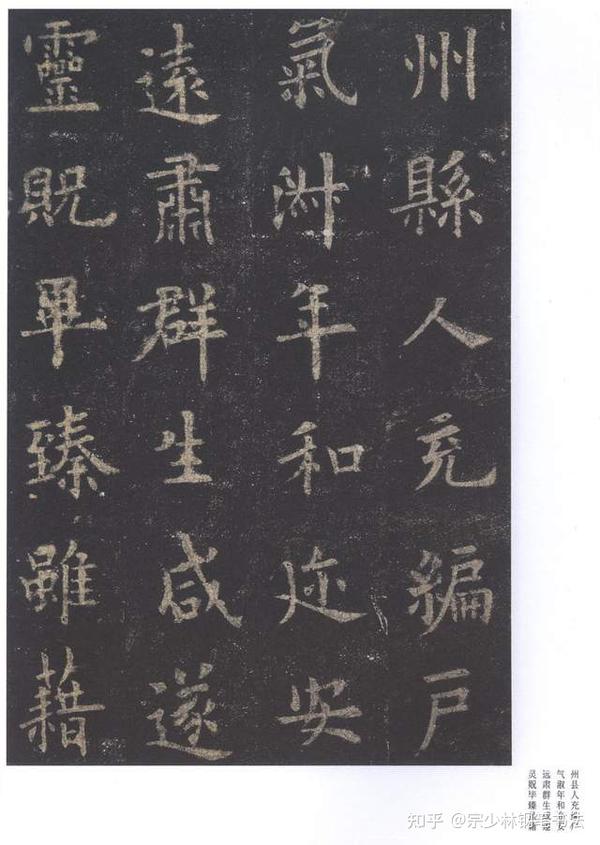 州縣人充編戶
氣淑年和迩安
遠肅群生咸遂
靈貺畢臻雖藉
州县人充编户
气淑年和迩安
远肃群生咸遂
灵贶毕臻虽藉
知乎 @宗少林钢笔书法